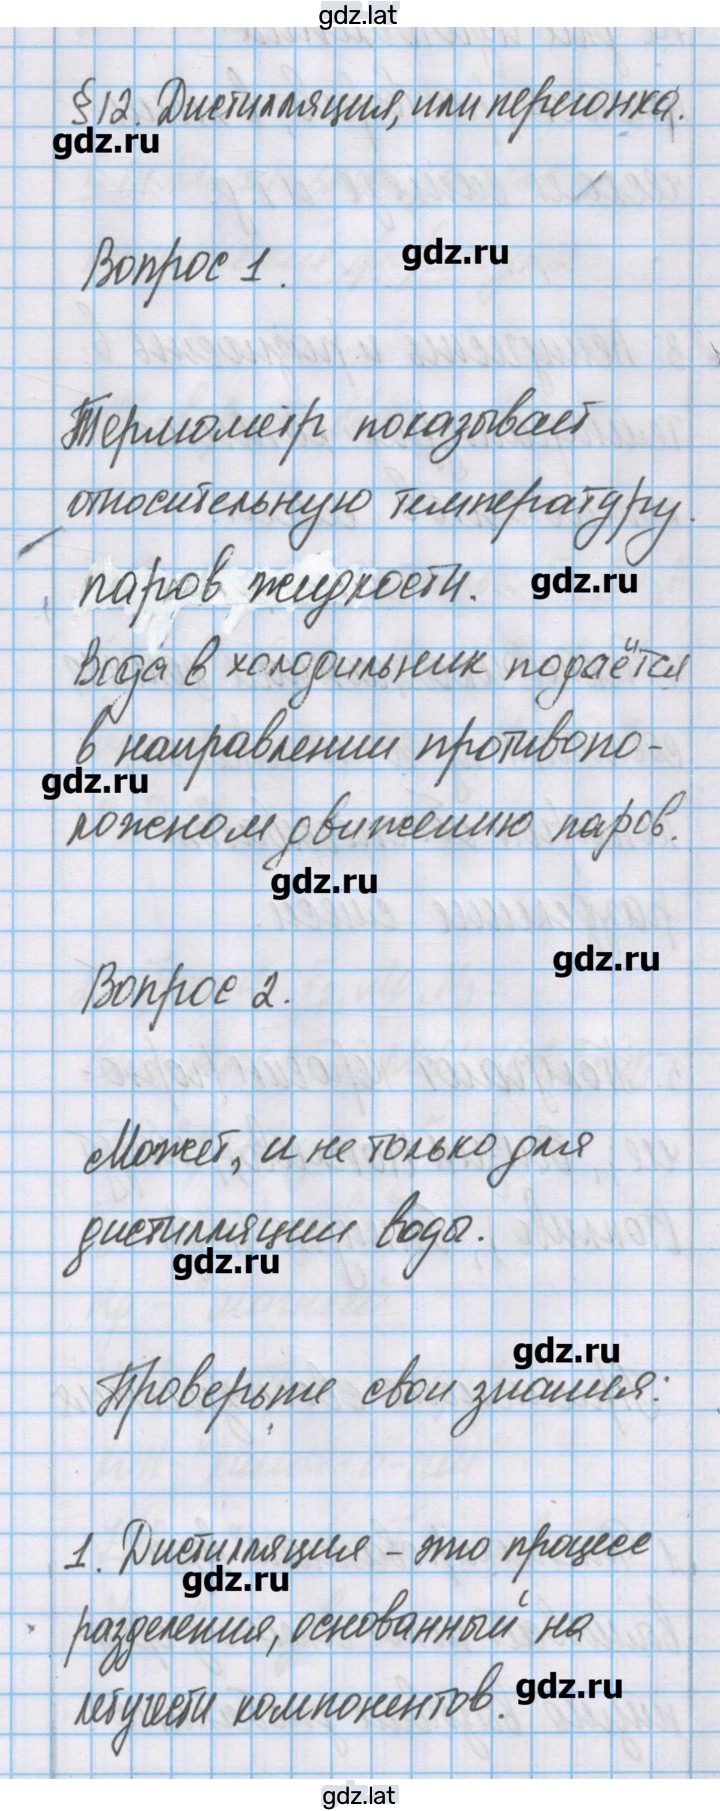 gdz.lat
§12. Дистилляция, или перегонка.
gdz.ru
gdz.ru
Вопрос 1.
Термометр показывает
относительную температуру.
паров жидкости.
gdz.ru
Вода в холодильник подаётся
в направлении противопо-
gdz.ru
ложном движению паров.
gdz.ru
gdz.ru
Вопрос 2.
Может, и не только для
дистилляции воды.
gdz.ru
gdz.ru
Проверьте свои знания:
1. Дистилляция - это процесс
gdz.ru
разделения, основанный на
летучести компонентов.
gdz.ru
gdz.lat